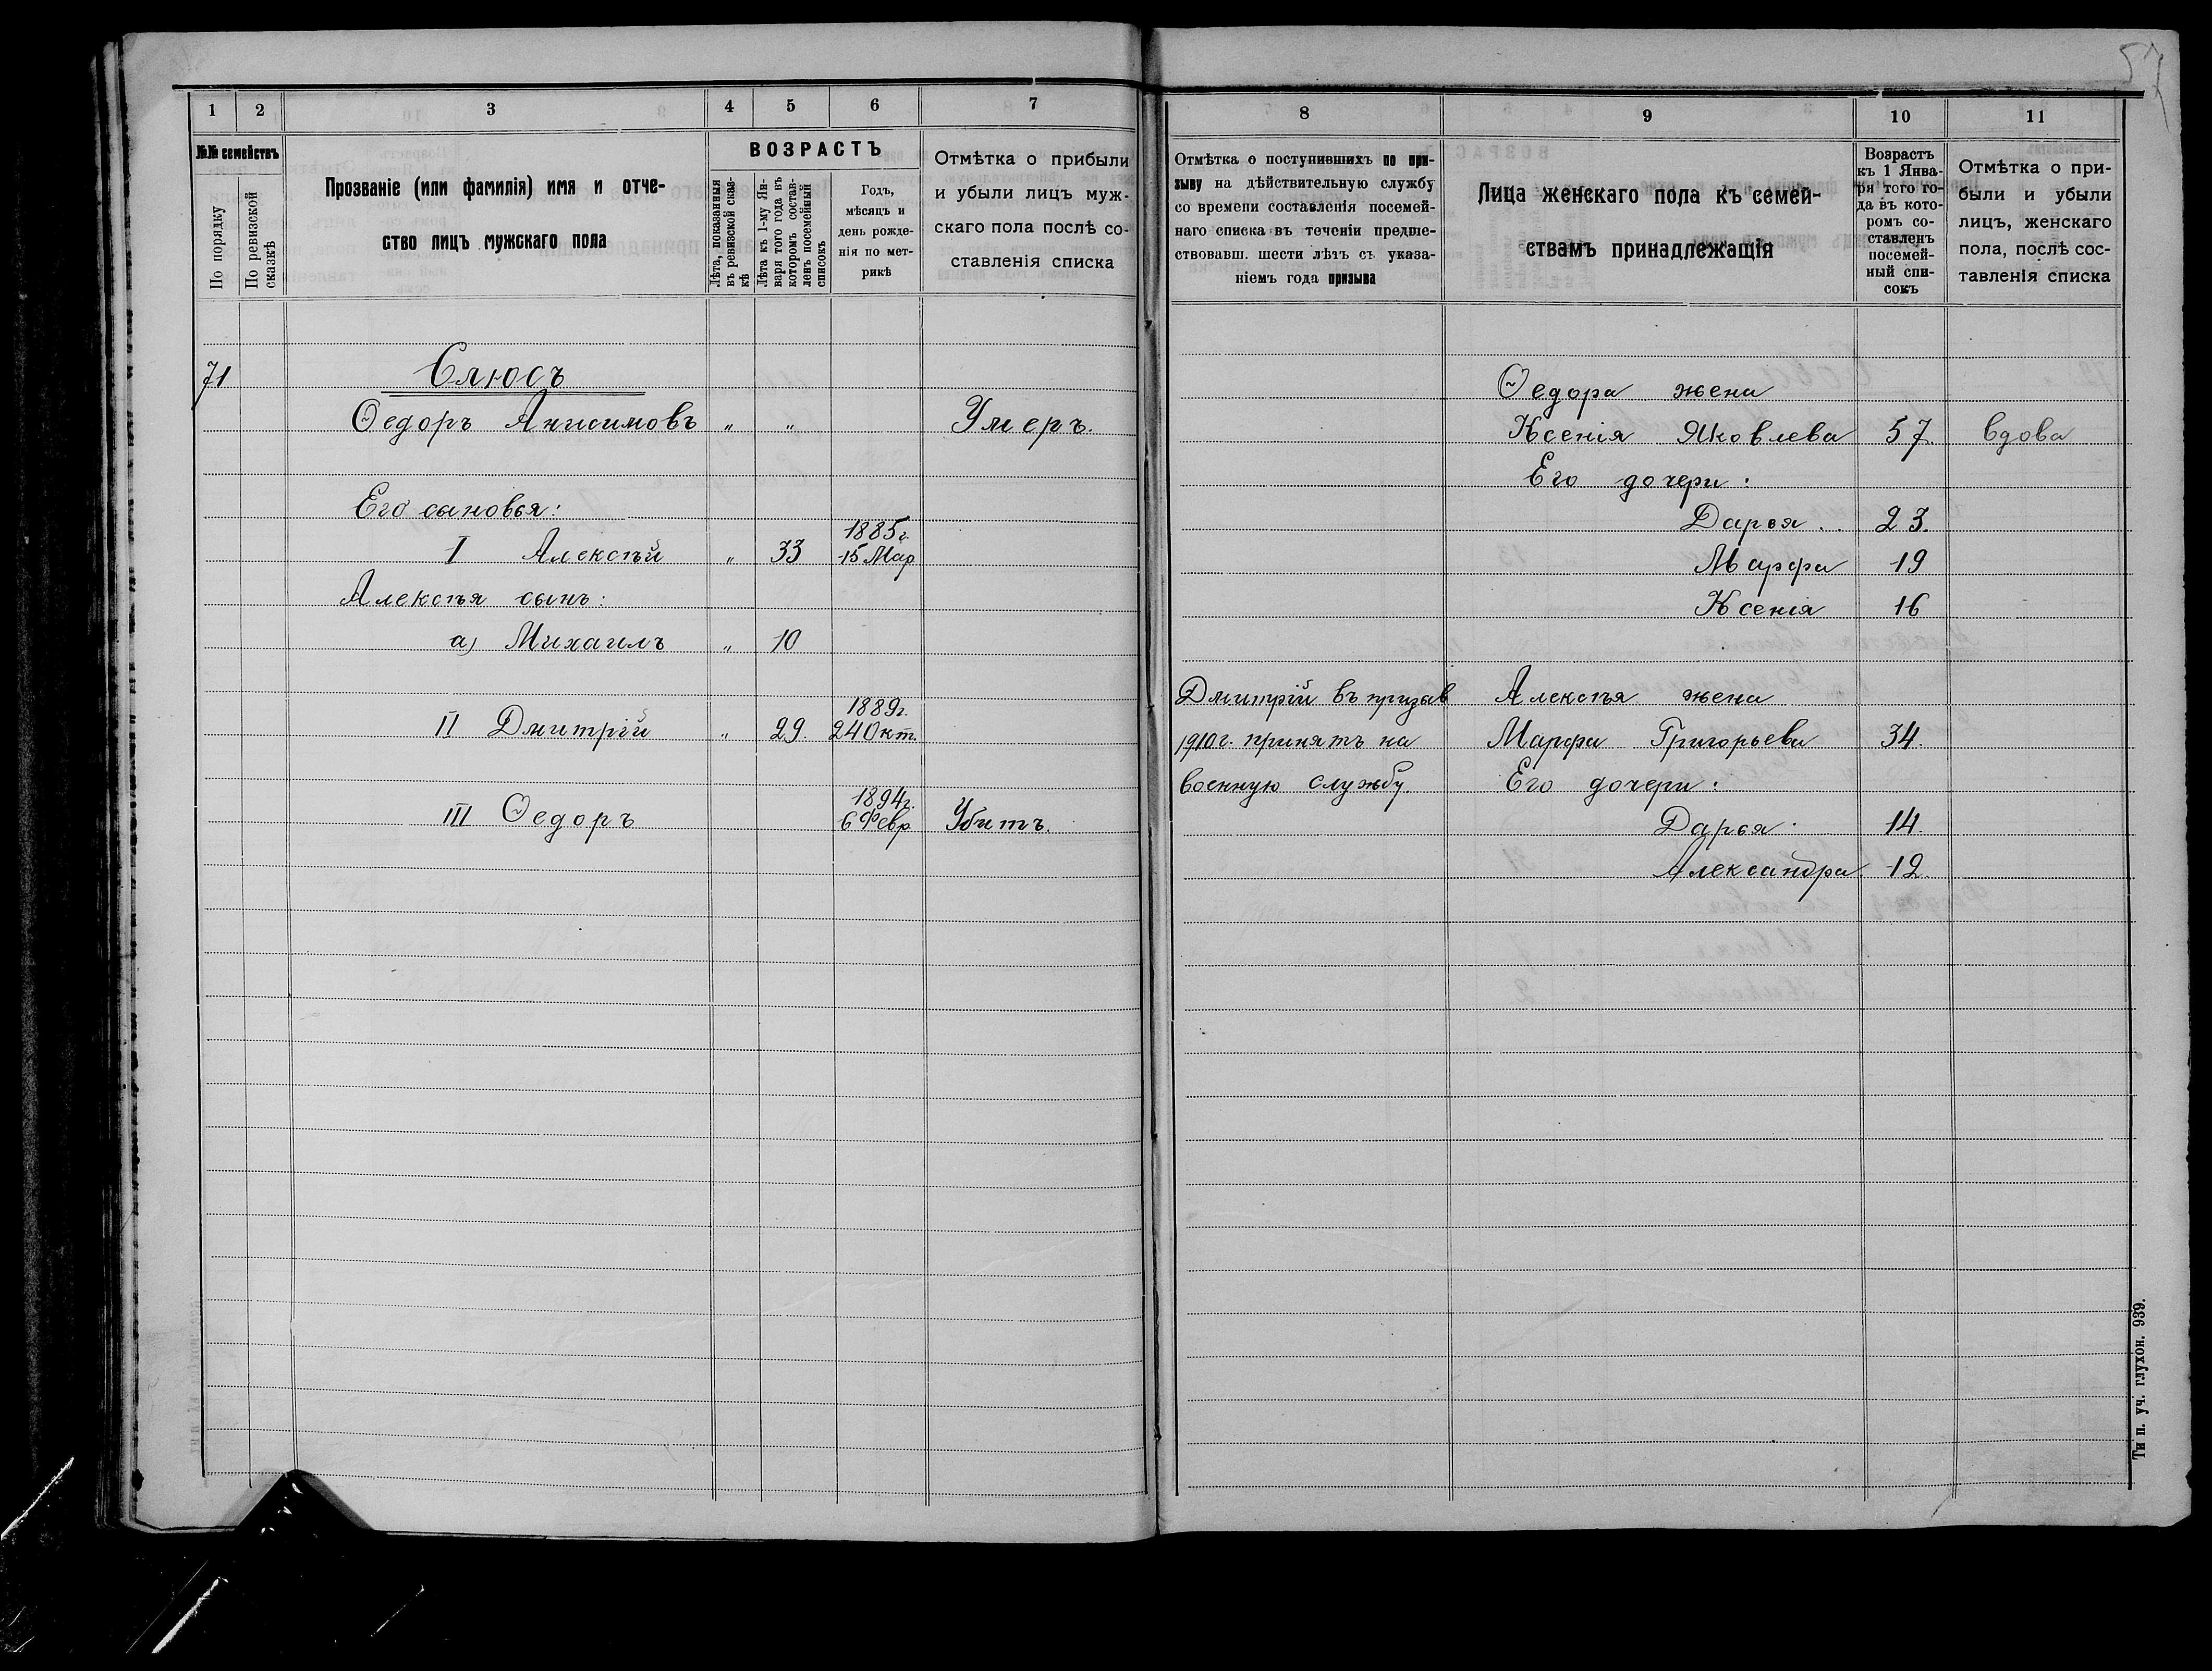 57
1 2 3 4 5 6 7
№№ семействъ
По порядку
По ревизской сказкѣ
Прозваніе (или фамилія) имя и отче-
ство лицъ мужскаго пола
ВОЗРАСТЪ
Лѣта, показанныя
въ ревизской сказ-
кѣ
Лѣта къ 1-му Ян-
варя того года въ
которомъ состав-
ленъ посемейный
списокъ
Годъ,
мѣсяцъ и
день рожде-
нія по мет-
рикѣ
Отмѣтка о прибыли
и убыли лицъ муж-
скаго пола послѣ со-
ставленія списка
71 Слюсъ
Ѳедоръ Анисимовъ „ „ Умеръ.
Его сыновья:
1885 г.
I Алексѣй „ 33 15 Мар
Алексѣя сынъ:
а) Михаилъ „ 10
1889 г.
II Дмитрій „ 29. 24 Окт.
1894 г.
III Ѳедоръ 6 Февр Убитъ.
8 9 10 11
Отмѣтка о поступившихъ по при-
зыву на дѣйствительную службу
со времени составленія посемей-
наго списка въ теченіи предше-
ствовавш. шести лѣтъ съ указа-
ніемъ года призыва
Лица женскаго пола къ семей-
ствамъ принадлежащія
Возрастъ
къ 1 Янва-
ря того го-
да въ кото-
ромъ со-
ставленъ
посемей-
ный спи-
сокъ
Отмѣтка о при-
были и убыли
лицъ, женскаго
пола, послѣ сос-
тавленія списка
Ѳедора жена
Ксенія Яковлева 57. вдова
Его дочери:
Дарья. 23.
Марфа 19
Ксенія 16
Дмитрій въ призыв Алексѣя жена
1910 г. принятъ на Марфа Григорьева 34.
военную службу. Его дочери:
Дарья 14.
Александра. 12.
Тип. уч. глухон. 939.